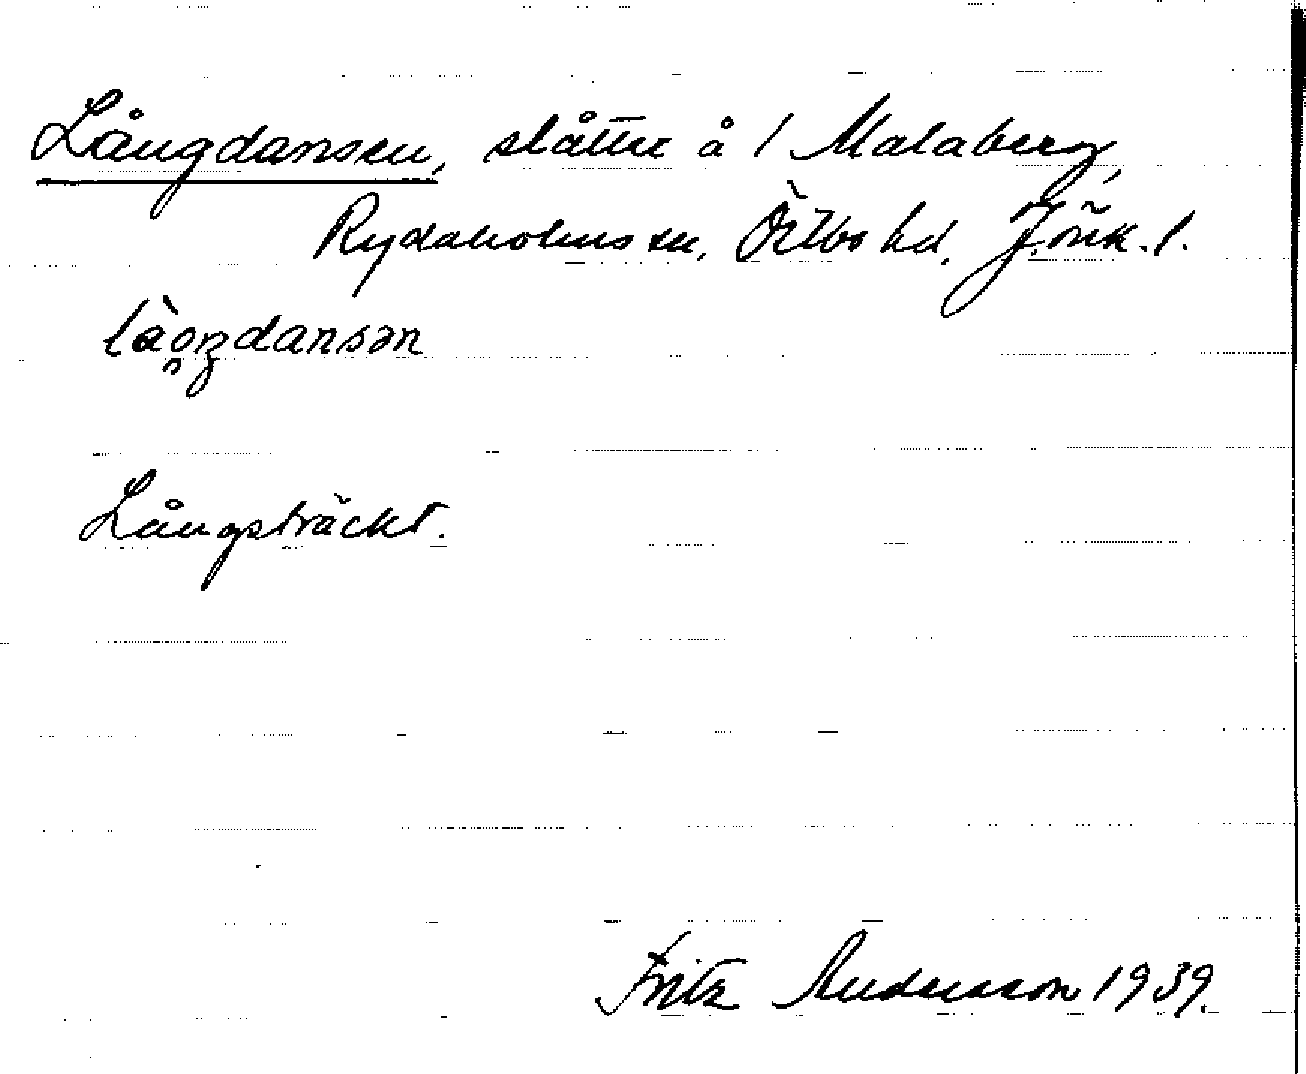 Långdansen, slåtter å / Malaberg,
Rydaholms sn, Östbo hd, Jönk. l.
Långsträckt.
Fritz Andersson 1939.